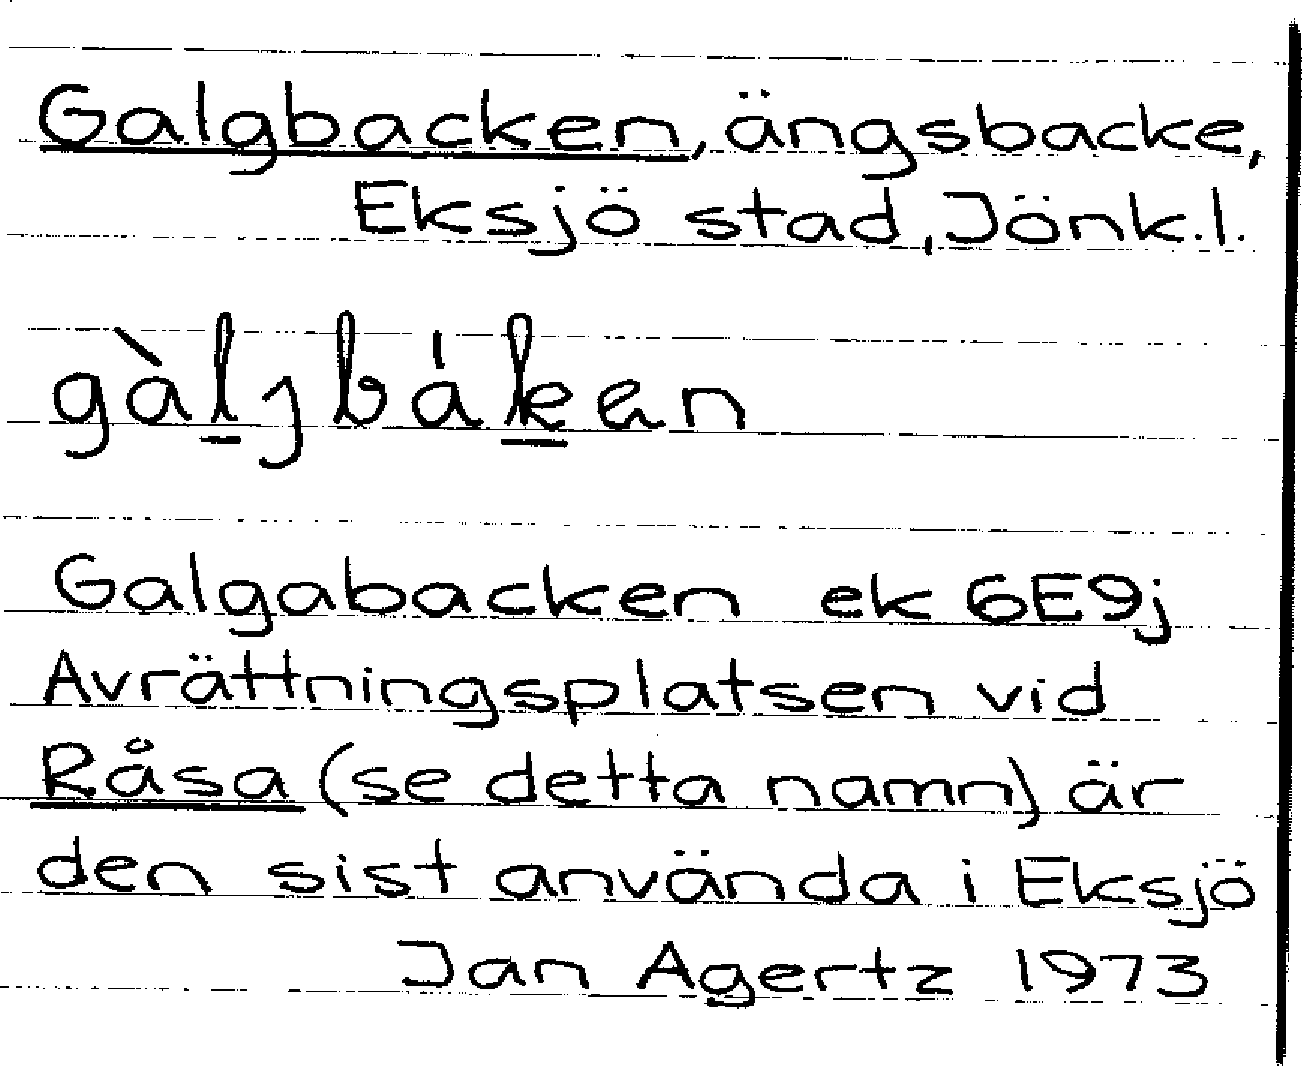 Galgbacken, ängsbacke,
Eksjö stad, Jönk.l.
gàljbákən
Galgabacken ek 6E9j
Avrättningsplatsen vid
Råsa (se detta namn) är
den sist använda i Eksjö
Jan Agertz 1973